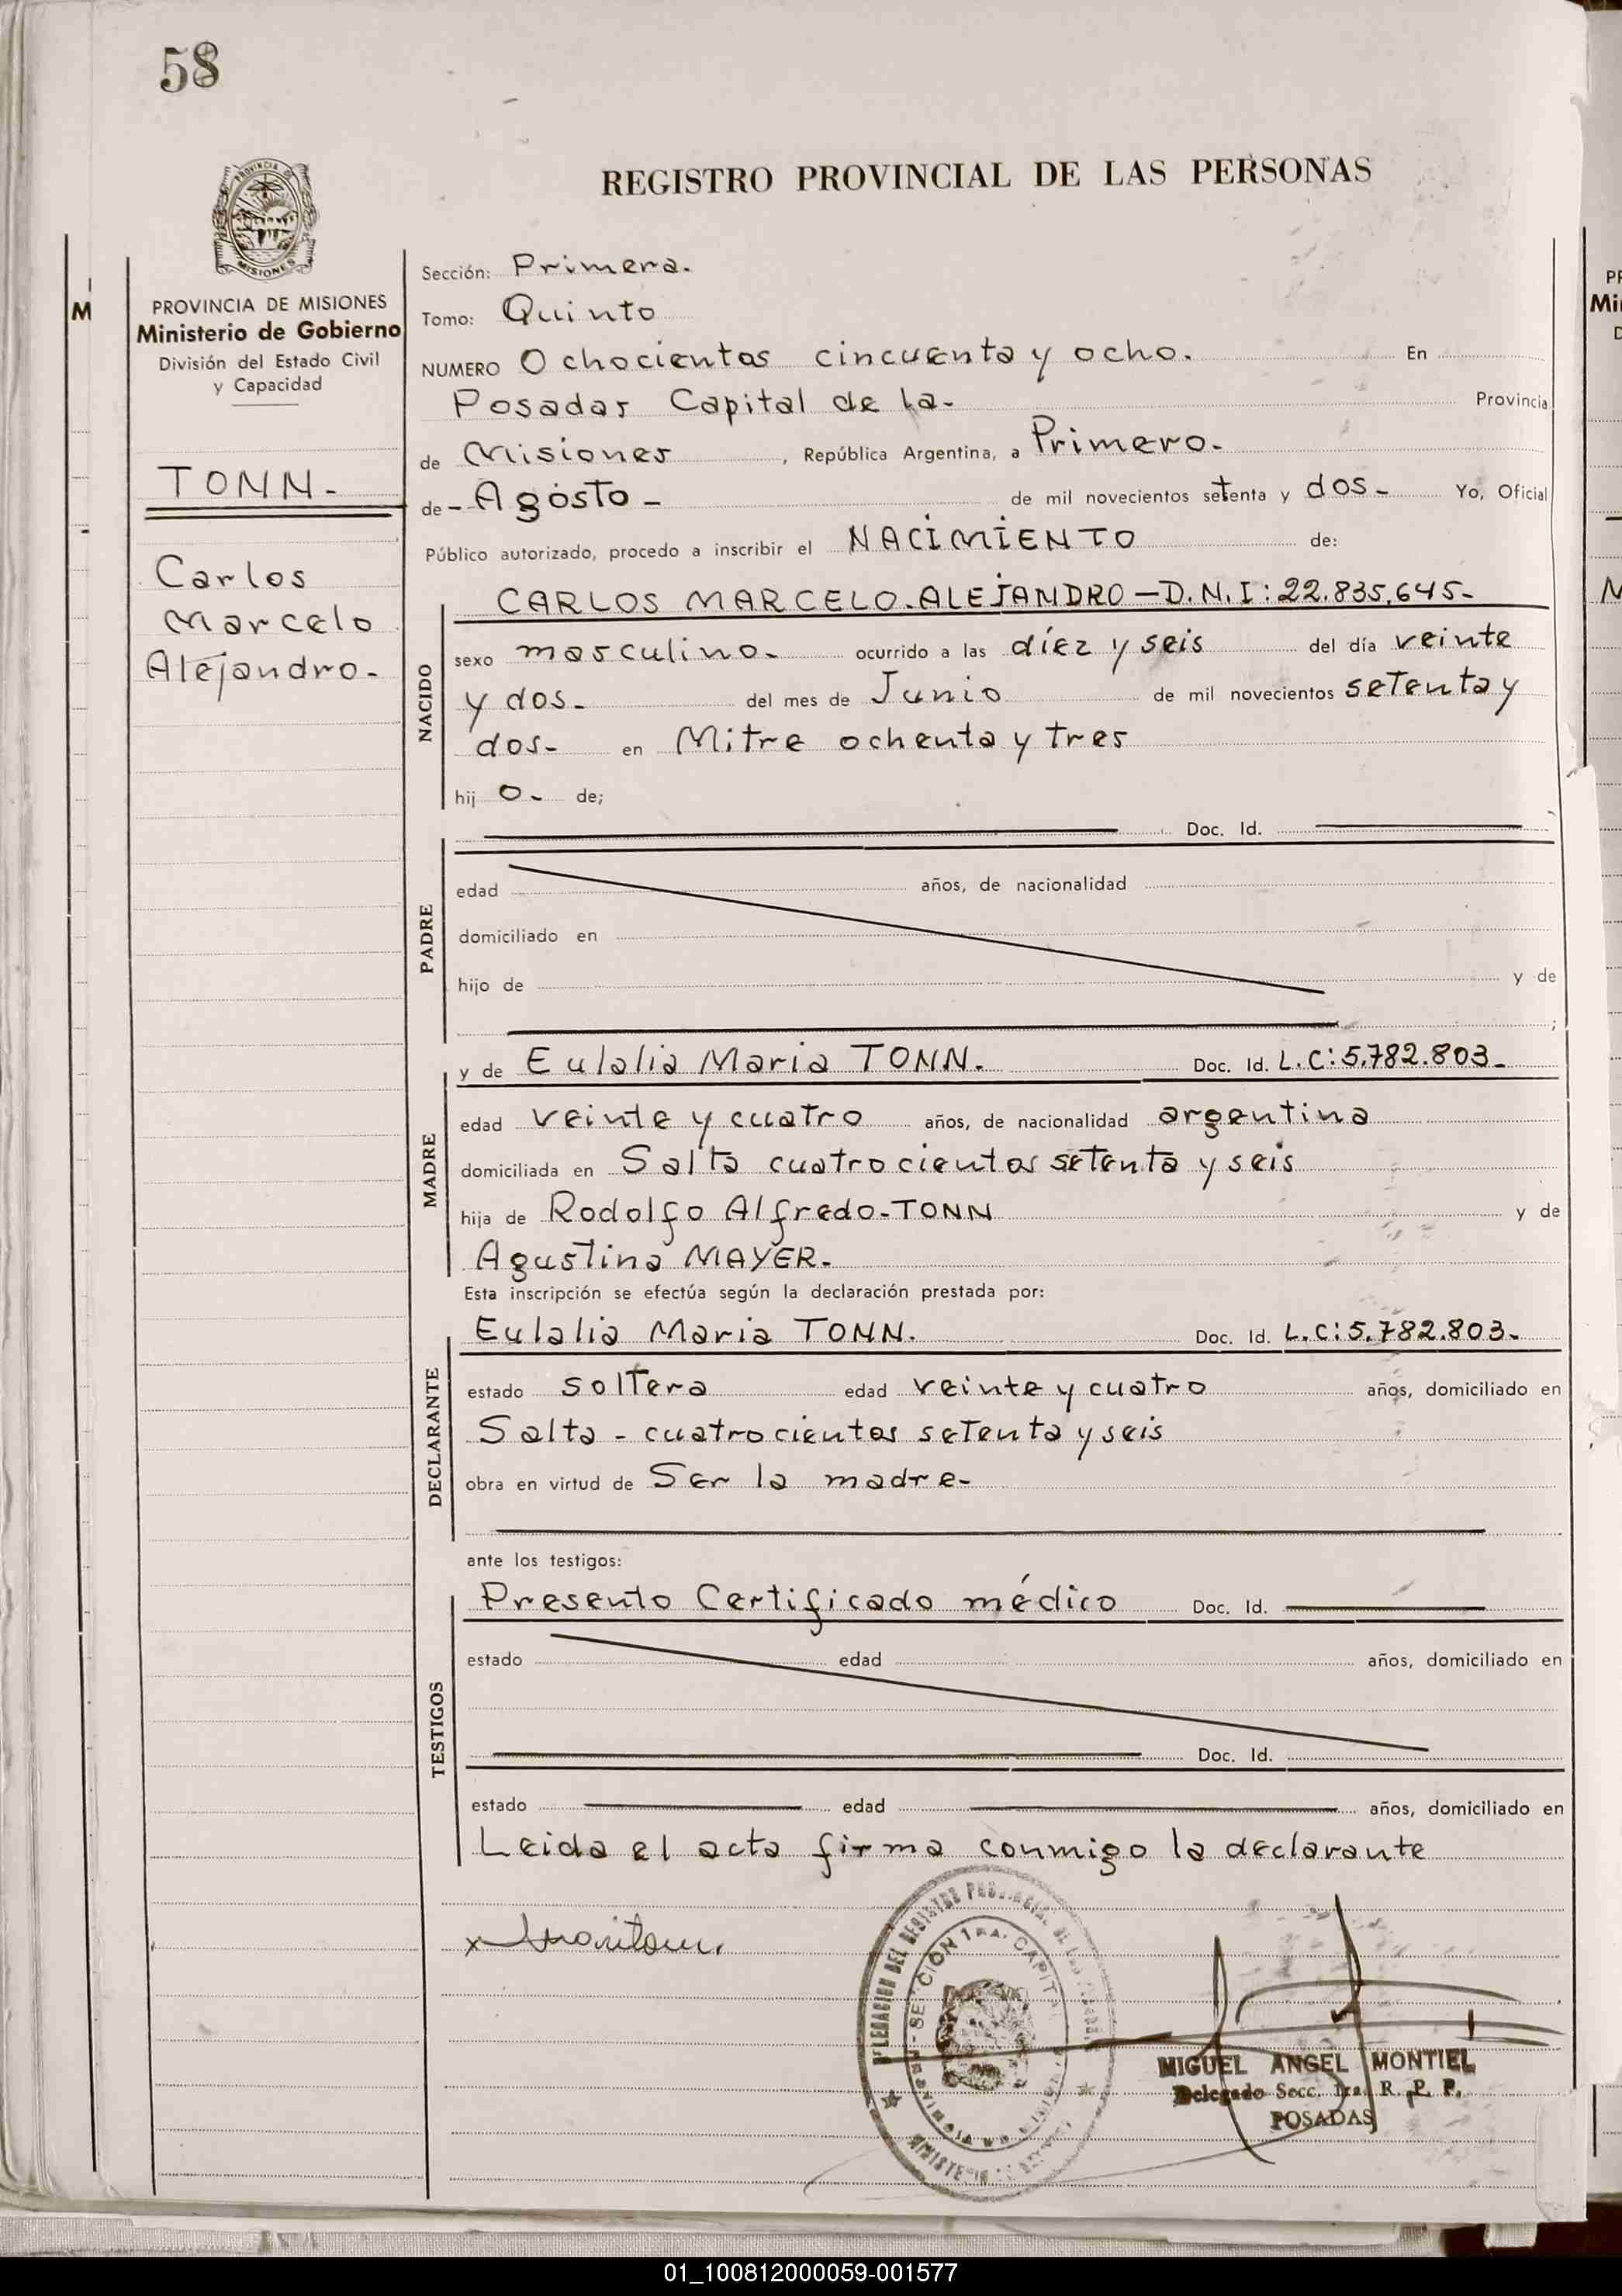 58
REGISTRO PROVINCIAL DE LAS PERSONAS
PROVINCIA DE MISIONES
Ministerio de Gobierno
División del Estado Civil
y Capacidad
TONN-
Carlos
Marcelo
Alejandro-
Sección: Primera.
Tomo: Quinto
NUMERO Ochocientos cincuenta y ocho. En
Posadas Capital de la- Provincia
de Misiones, República Argentina, a Primero-
de - Agosto - de mil novecientos setenta y dos- Yo, Oficial
Público autorizado, procedo a inscribir el NACIMIENTO de:
NACIDO
CARLOS MARCELO-ALEJANDRO-D.N.I:22.835.645-
sexo masculino- ocurrido a las díez y seis del día veinte
y dos- del mes de Junio de mil novecientos setenta y
dos- en Mitre ochenta y tres
hij o- de;
Doc. Id.
PADRE
edad años, de nacionalidad
domiciliado en
hijo de y de
;
y de Eulalia Maria TONN. Doc. Id. L.C:5.782.803-
MADRE
edad veinte y cuatro años, de nacionalidad argentina
domiciliada en Salta cuatrocientos setenta y seis
hija de Rodolfo Alfredo-TONN y de
Agustina MAYER-
Esta inscripción se efectúa según la declaración prestada por:
Eulalia Maria TONN. Doc. Id. L.C:5.782.803-
DECLARANTE
estado soltera edad veinte y cuatro años, domiciliado en
Salta - cuatrocientos setenta y seis
obra en virtud de Ser la madre-
ante los testigos:
Presento Certificado médico Doc. Id.
TESTIGOS
estado edad años, domiciliado en
Doc. Id.
estado edad años, domiciliado en
Leida el acta firma conmigo la declarante
MIGUEL ANGEL MONTIEL
Delegado Secc. 1ra. R. P. P.
POSADAS
01_100812000059-001577